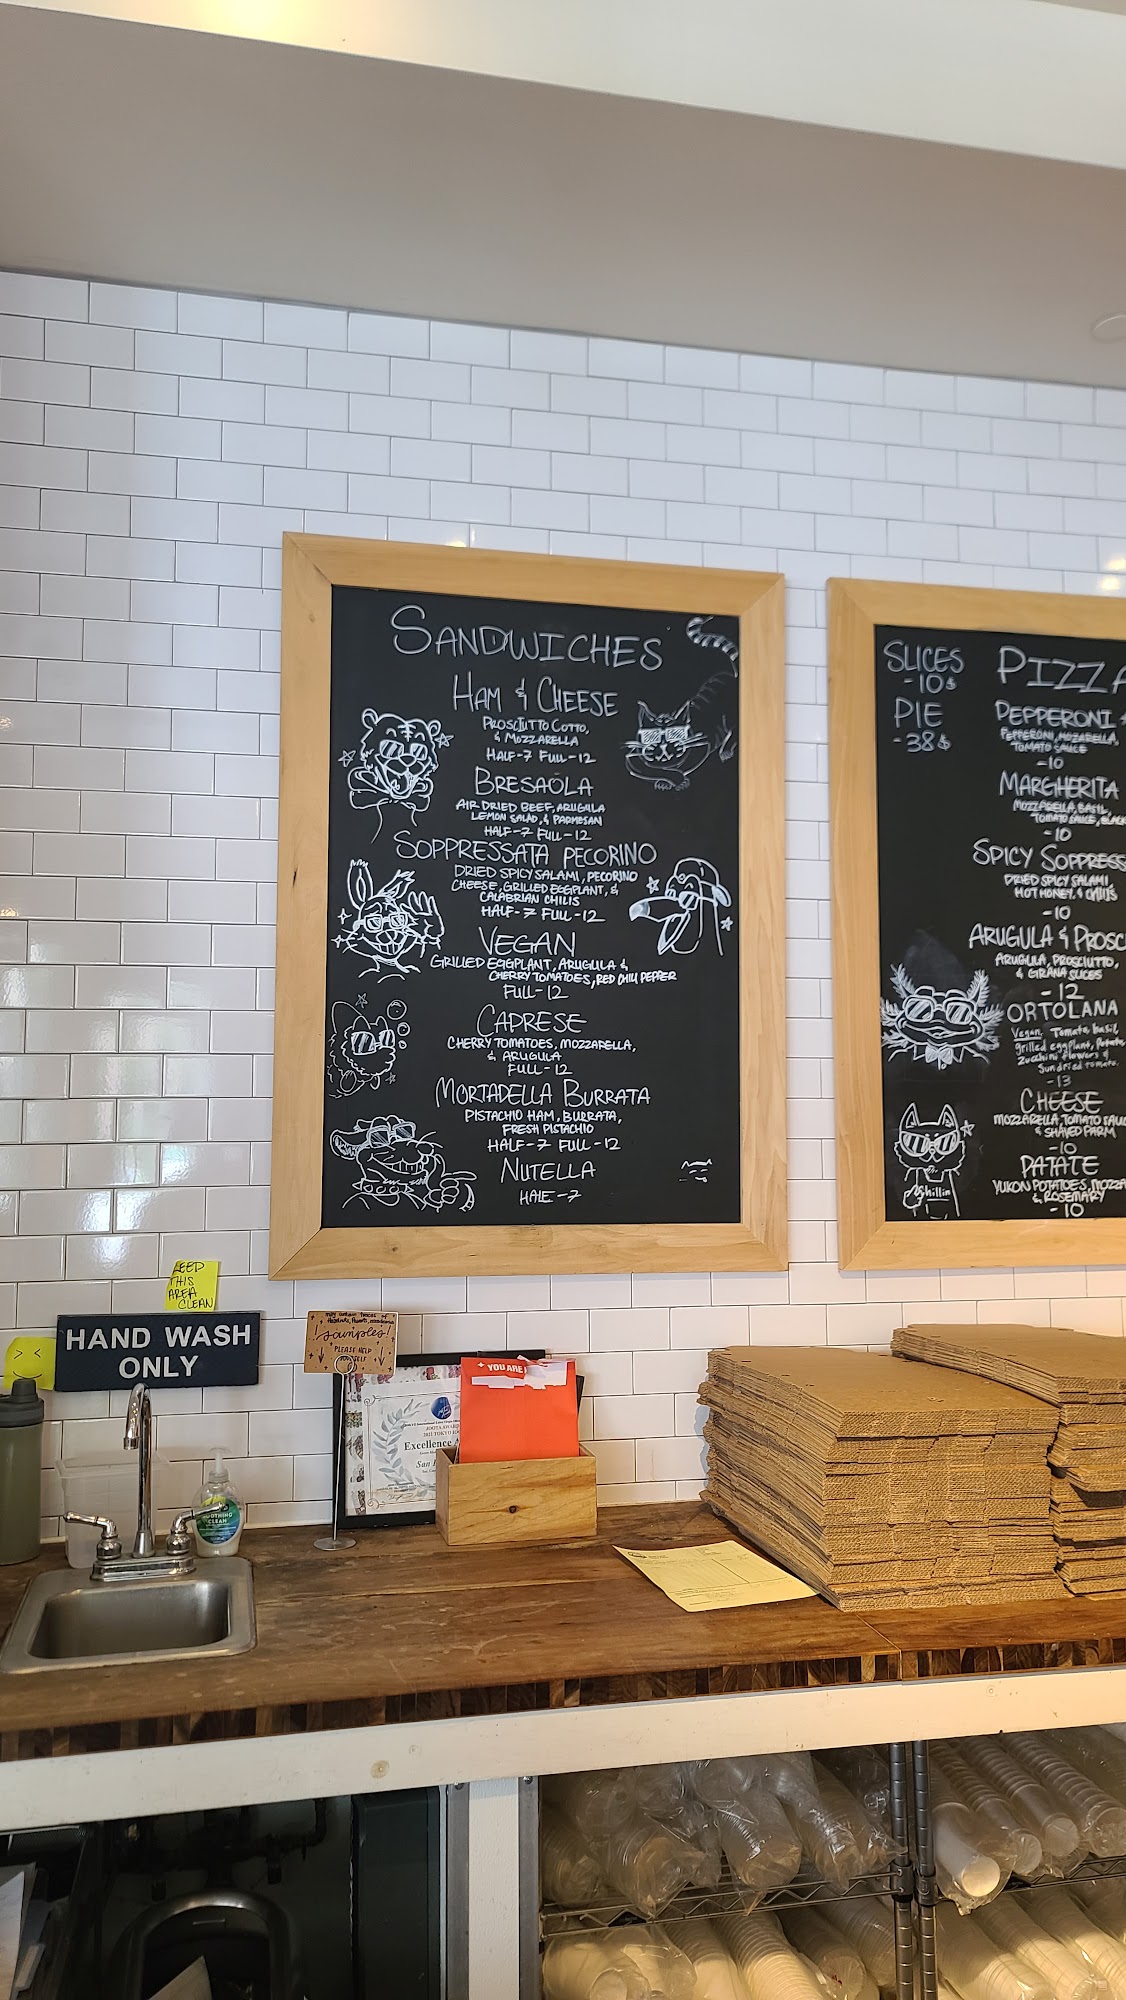 SANDWICHES
HAM & CHEESE
PROSCIUTTO COTTO,
& MOZZARELLA
HALF-7 FULL-12
BRESAOLA
AIR DRIED BEEF, ARUGULA
LEMON SALAD, & PARMESAN
HALF-7 FULL-12
SOPPRESSATA PECORINO
DRIED SPICY SALAMI, PECORINO
CHEESE, GRILLED EGGPLANT, &
CALABRIAN CHILIS
HALF-7 FULL-12
VEGAN
GRILLED EGGPLANT, ARUGULA &
CHERRY TOMATOES, RED CHILI PEPPER
FULL-12
CAPRESE
CHERRY TOMATOES, MOZZARELLA,
& ARUGULA
FULL-12
MORTADELLA BURRATA
PISTACHIO HAM, BURRATA,
FRESH PISTACHIO
HALF-7 FULL-12
NUTELLA
HALF-7
SLICES
-10$
PIE
-38$
PIZZA
PEPPERONI
PEPPERONI, MOZARELLA,
TOMATO SAUCE
-10
MARGHERITA
MOZZARELLA, BASIL,
TOMATO SAUCE, BLACK
-10
SPICY SOPPRESS
DRIED SPICY SALAMI,
HOT HONEY, &
-10
ARUGULA & PROSC
ARUGULA, PROSCIUTTO,
& GRANA SLICES
-12
ORTOLANA
Vegan. Tomato, basil,
grilled eggplant, Potato,
Zucchini flowers &
Sundried tomato.
-13
CHEESE
MOZZARELLA, TOMATO SAUC
& SHAVED PARM
-10
PATATE
YUKON POTATOES, MOZZA
& ROSEMARY
-10
Chillin
KEEP
THIS
AREA
CLEAN
HAND WASH
ONLY
may contain traces of
! samples!
PLEASE HELP
YOURSELF
YOU ARE
2023 TOKYO
Excellence A
San
SOOTHING
CLEAN